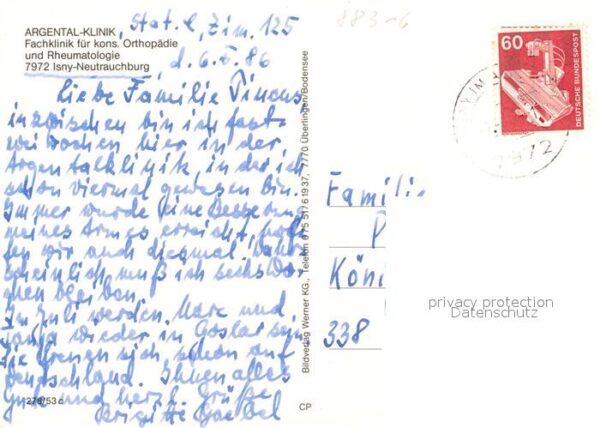 ARGENTAL-KLINIK
Fachklinik für kons. Orthopädie
und Rheumatologie
7972 Isny-Neutrauchburg
Zim. 125
d. 6.5.86
Liebe Familie Pincus
inzwischen bin ich fast
Wochen hier in der
Argentalklinik, in der ich
schon viermal gewesen bin.
Immer wurde eine Besserung
meines Armes erreicht, hof-
fen wir auch diesmal. Wahr-
scheinlich muß ich sechs Wo-
chen bleiben.
Im Juli werden Marc und
wieder in Goslar sein
Sie freuen sich schon auf
Deutschland. Ihnen alles
Gute und herzl. Grüße
Brigitte
276/53 c
Bildverlag Werner KG., Telefon 0 75 51/ 6 19 37, 7770 Überlingen/Bodensee
CP
883-6
60
DEUTSCHE BUNDESPOST
7972
Famili
P
Köni
338
privacy protection
Datenschutz